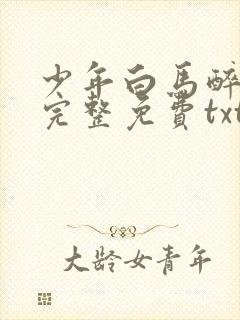 少年白马醉
完整免費txt
大龄女青年